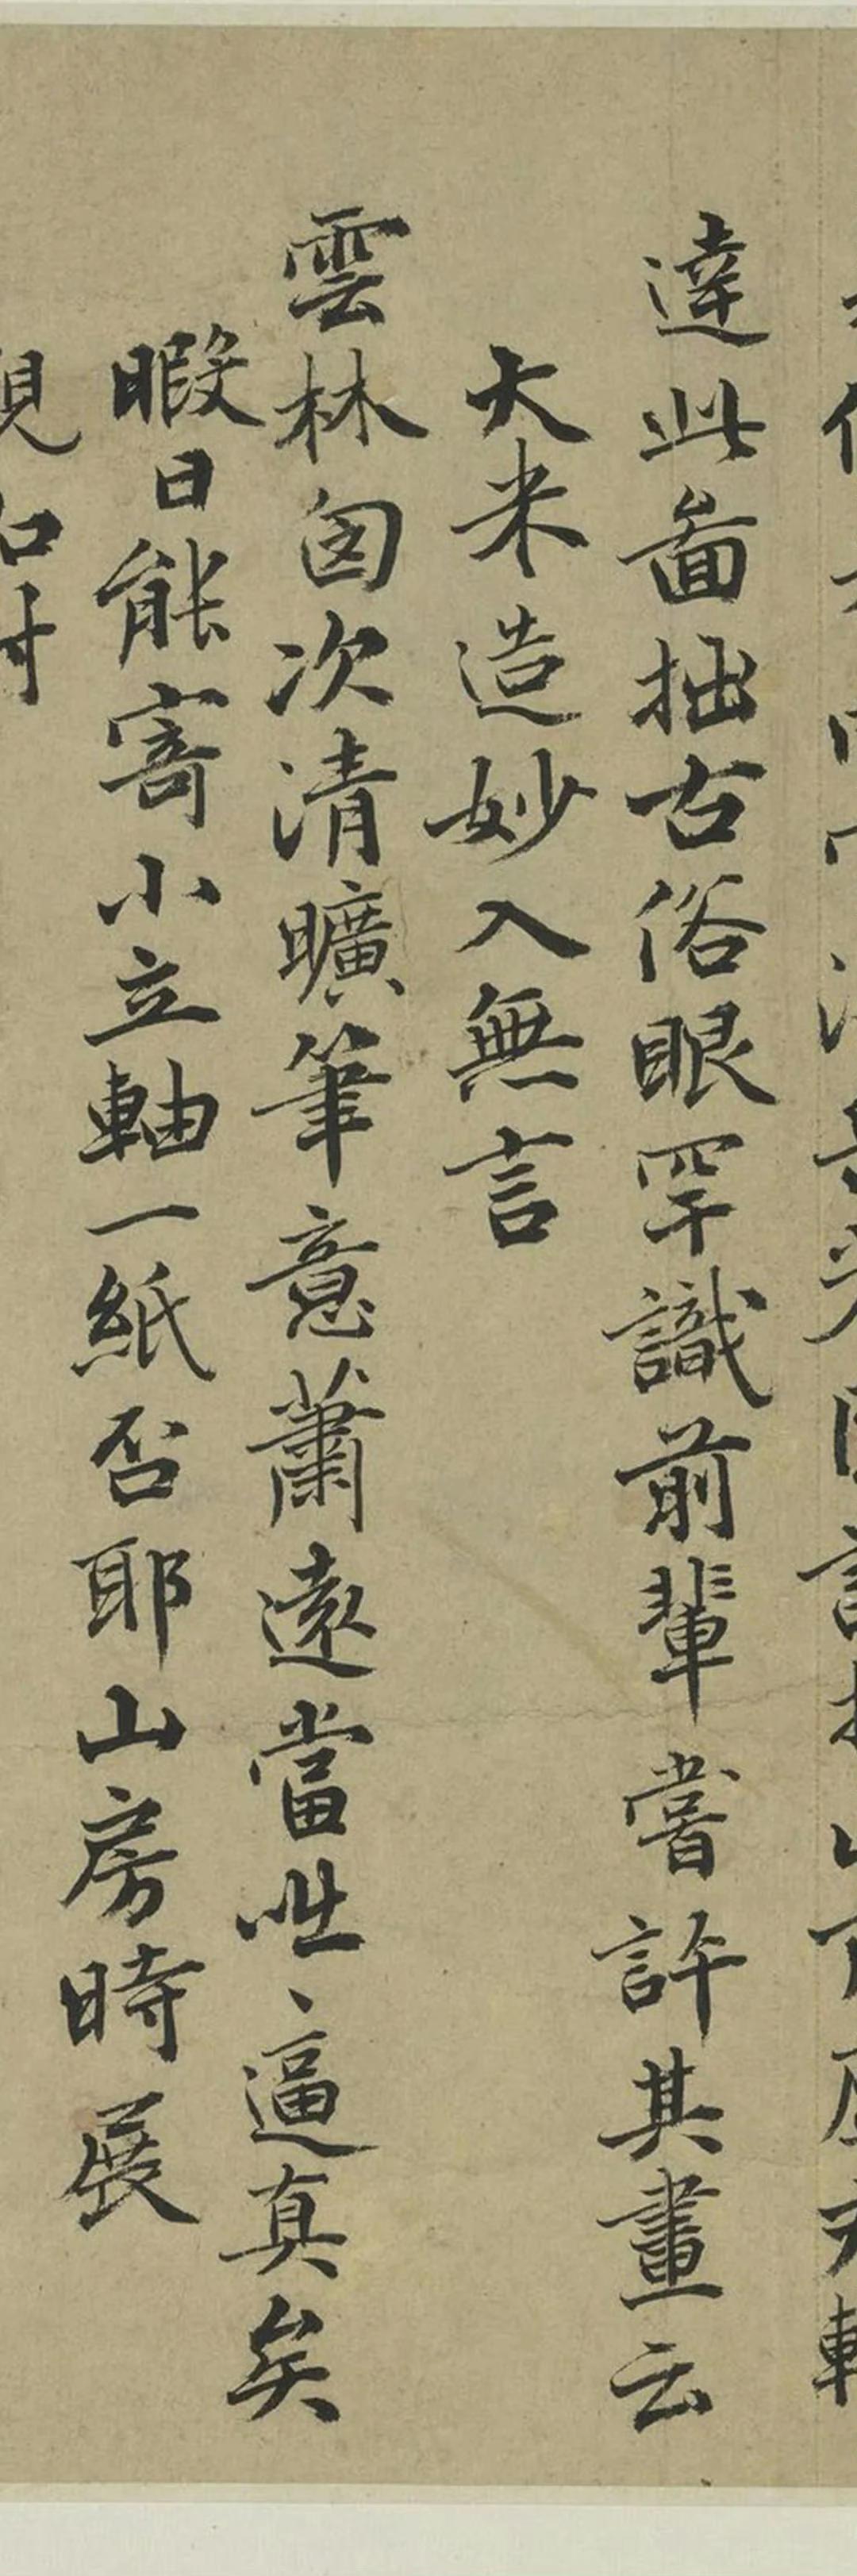 達此啚拙古俗眼罕識前輩嘗許其畫云
大米造妙入無言
雲林囪次清曠筆意蕭遠當咄〻逼真矣
暇日能寄小立軸一紙否耶山房時展